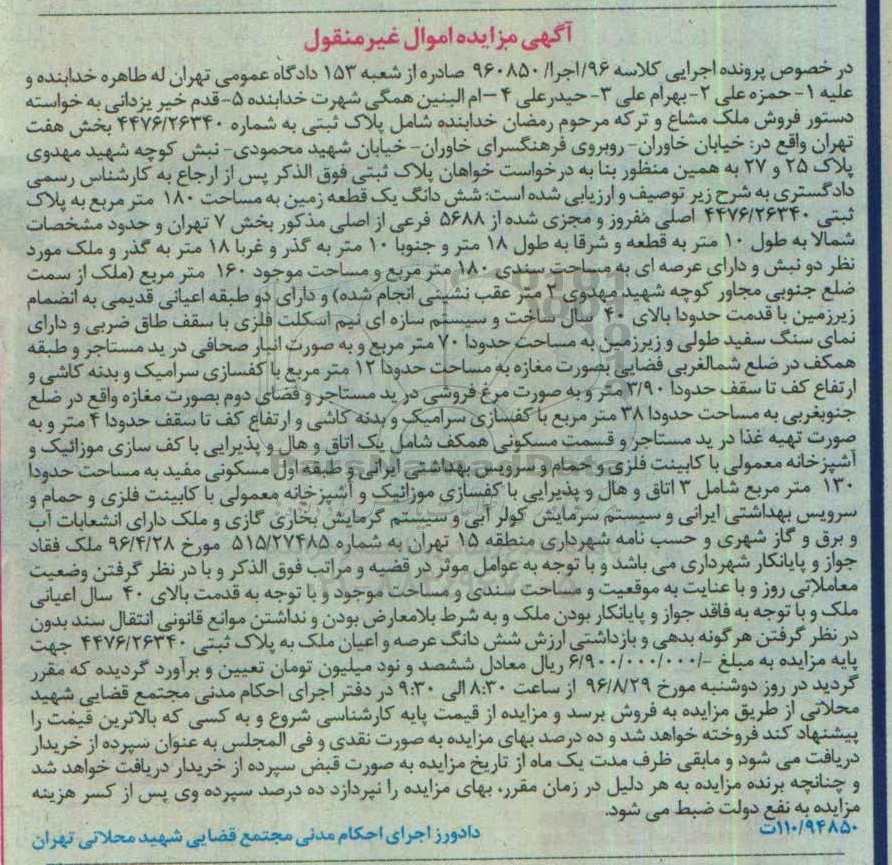 آگهی مزایده اموال غیر منقول
در خصوص پرونده اجرایی کلاسه ۹۶/اجرا/۹۶۰۸۵۰ صادره از شعبه ۱۵۳ دادگاه عمومی تهران له طاهره خدابنده و
علیه ۱- حمزه علی ۲- بهرام علی ۳- حیدرعلی ۴ –ام البنین همگی شهرت خدابنده ۵-قدم خیر یزدانی به خواسته
دستور فروش ملک مشاع و ترکه مرحوم رمضان خدابنده شامل پلاک ثبتی به شماره ۴۴۷۶/۲۶۳۴۰ بخش هفت
تهران واقع در: خیابان خاوران- روبروی فرهنگسرای خاوران- خیابان شهید محمودی- نبش کوچه شهید مهدوی
پلاک ۲۵ و ۲۷ به همین منظور بنا به درخواست خواهان پلاک ثبتی فوق الذکر پس از ارجاع به کارشناس رسمی
دادگستری به شرح زیر توصیف و ارزیابی شده است: شش دانگ یک قطعه زمین به مساحت ۱۸۰ متر مربع به پلاک
ثبتی ۴۴۷۶/۲۶۳۴۰ اصلی مفروز و مجزی شده از ۵۶۸۸ فرعی از اصلی مذکور بخش ۷ تهران و حدود مشخصات
شمالا به طول ۱۰ متر به قطعه و شرقا به طول ۱۸ متر و جنوبا ۱۰ متر به گذر و غربا ۱۸ متر به گذر و ملک مورد
نظر دو نبش و دارای عرصه ای به مساحت سندی ۱۸۰ متر مربع و مساحت موجود ۱۶۰ متر مربع (ملک از سمت
ضلع جنوبی مجاور کوچه شهید مهدوی ۲ متر عقب نشینی انجام شده) و دارای دو طبقه اعیانی قدیمی به انضمام
زیرزمین با قدمت حدودا بالای ۴۰ سال ساخت و سیستم سازه ای نیم اسکلت فلزی با سقف طاق ضربی و دارای
نمای سنگ سفید طولی و زیرزمین به مساحت حدودا ۷۰ متر مربع و به صورت انبار صحافی در ید مستاجر و طبقه
همکف در ضلع شمالغربی فضایی بصورت مغازه به مساحت حدودا ۱۲ متر مربع با کفسازی سرامیک و بدنه کاشی و
ارتفاع کف تا سقف حدودا ۳/۹۰ متر و به صورت مرغ فروشی در ید مستاجر و فضای دوم بصورت مغازه واقع در ضلع
جنوبغربی به مساحت حدودا ۳۸ متر مربع با کفسازی سرامیک و بدنه کاشی و ارتفاع کف تا سقف حدودا ۴ متر و به
صورت تهیه غذا در ید مستاجر و قسمت مسکونی همکف شامل یک اتاق و هال و پذیرایی با کف سازی موزائیک و
آشپزخانه معمولی با کابینت فلزی و حمام و سرویس بهداشتی ایرانی و طبقه اول مسکونی مفید به مساحت حدودا
۱۳۰ متر مربع شامل ۳ اتاق و هال و پذیرایی با کفسازی موزائیک و آشپزخانه معمولی با کابینت فلزی و حمام و
سرویس بهداشتی ایرانی و سیستم سرمایش کولر آبی و سیستم گرمایش بخاری گازی و ملک دارای انشعابات آب
و برق و گاز شهری و حسب نامه شهرداری منطقه ۱۵ تهران به شماره ۵۱۵/۲۷۴۸۵ مورخ ۹۶/۴/۲۸ ملک فقاد
جواز و پایانکار شهرداری می باشد و با توجه به عوامل موثر در قضیه و مراتب فوق الذکر و با در نظر گرفتن وضعیت
معاملاتی روز و با عنایت به موقعیت و مساحت سندی و مساحت موجود و با توجه به قدمت بالای ۴۰ سال اعیانی
ملک و با توجه به فاقد جواز و پایانکار بودن ملک و به شرط بلامعارض بودن و نداشتن موانع قانونی انتقال سند بدون
در نظر گرفتن هرگونه بدهی و بازداشتی ارزش شش دانگ عرصه و اعیان ملک به پلاک ثبتی ۴۴۷۶/۲۶۳۴۰ جهت
پایه مزایده به مبلغ -/۶/۹۰۰/۰۰۰/۰۰۰ ریال معادل ششصد و نود میلیون تومان تعیین و برآورد گردیده که مقرر
گردید در روز دوشنبه مورخ ۹۶/۸/۲۹ از ساعت ۸:۳۰ الی ۹:۳۰ در دفتر اجرای احکام مدنی مجتمع قضایی شهید
محلاتی از طریق مزایده به فروش برسد و مزایده از قیمت پایه کارشناسی شروع و به کسی که بالاترین قیمت را
پیشنهاد کند فروخته خواهد شد و ده درصد بهای مزایده به صورت نقدی و فی المجلس به عنوان سپرده از خریدار
دریافت می شود و مابقی ظرف مدت یک ماه از تاریخ مزایده به صورت قبض سپرده از خریدار دریافت خواهد شد
و چنانچه برنده مزایده به هر دلیل در زمان مقرر، بهای مزایده را نپردازد ده درصد سپرده وی پس از کسر هزینه
مزایده به نفع دولت ضبط می شود.
۱۱۰/۹۴۸۵۰ت
دادورز اجرای احکام مدنی مجتمع قضایی شهید محلاتی تهران